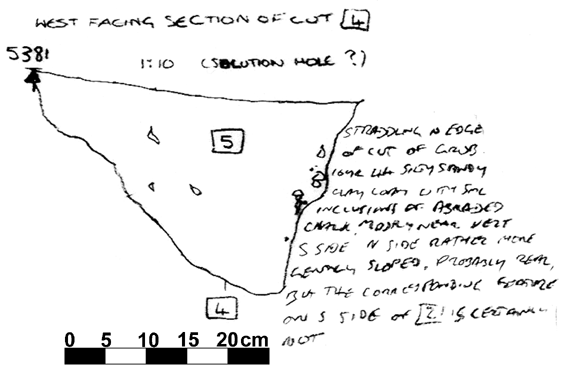 WEST FACING SECTION OF CUT 4
5381
1:10 (SOLUTION HOLE ?)
5
STRADDLING N EDGE
OF CUT OF GRUB.
10YR 4/4 SILTY SANDY
CLAY LOAM WITH SML
INCLUSIONS OF ABRADED
CHALK, MODRLY NEAR VERT
S SIDE N SIDE RATHER MORE
GENTLY SLOPED. PROBABLY REAL,
BUT THE CORRESPONDING FEATURE
ON S SIDE OF [2] IS CERTAINLY
NOT
4
0 5 10 15 20cm